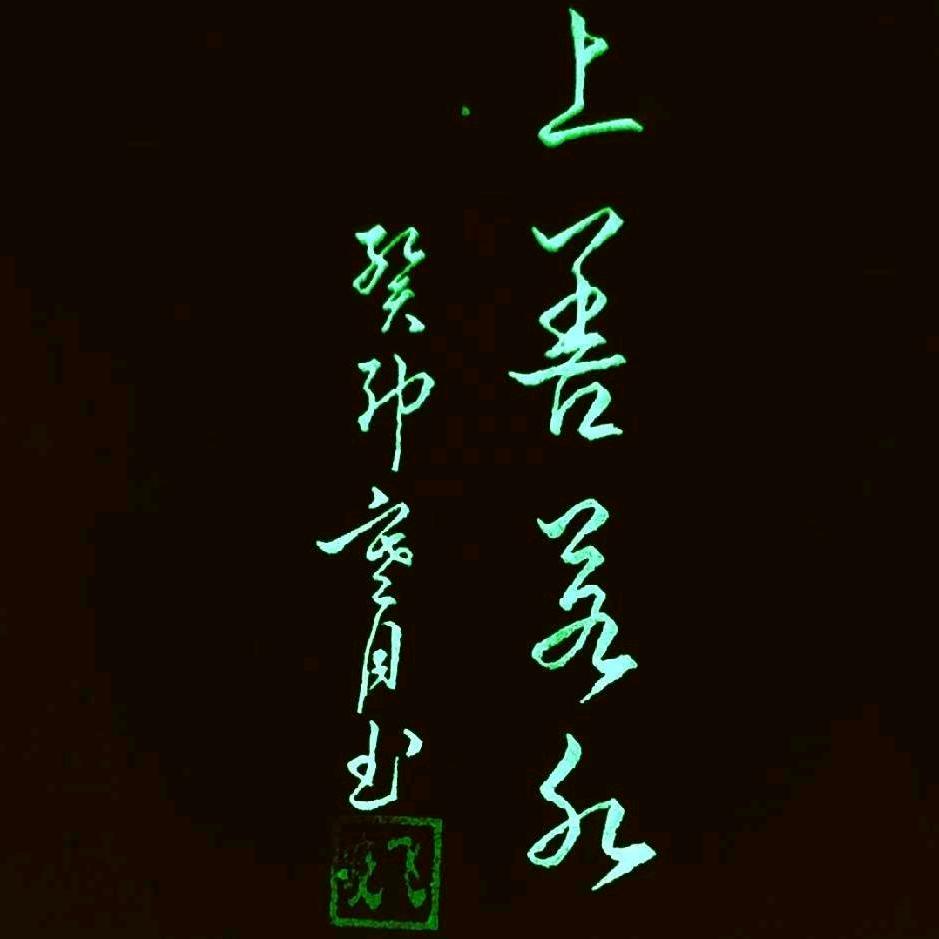 上善若水
癸卯寒月书